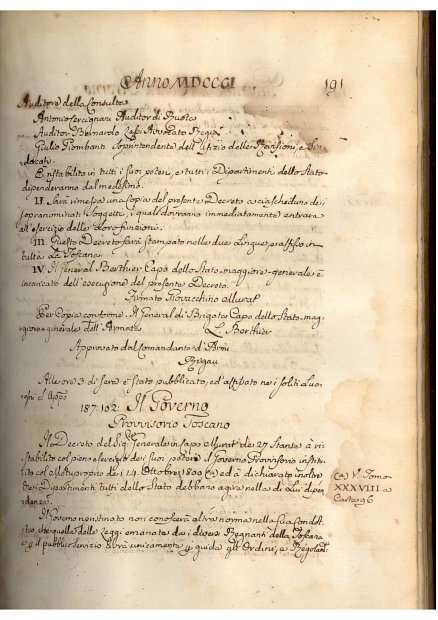 Anno MDCCCI
191
Auditore della Consulta
Antonio Auditor di Ruota
Auditor Bernardo Avvocato Regio
Giulio Piombanti Soprintendente dell'Ufizio delle Revisioni, e Sin-
dacati.
È ristabilito in tutti i suoi poteri, e tutti i Dipartimenti dello Stato
dipenderanno dal medesimo.
II. Sarà rimessa una Copia del presente Decreto a ciascheduno dei
sopranominati Soggetti, i quali dovranno immediatamente entrare
all'esercizio delle loro funzioni.
III. Questo Decreto sarà stampato nelle due Lingue, e affisso in
tutta la Toscana
IV. Il General Berthier Capo dello Stato maggiore generale è
incaricato dell'esecuzione del presente Decreto.
Firmato Giovacchino Murat
Per Copia conforme. Il General di Brigata Capo dello Stato mag-
giore generale dell'Armata
L. Berthier
Approvato dal Comandante d'Armi
Rigau
Alle ore 3 di sera è stato pubblicato, ed affisso nei soliti Luo-
ghi d'Appo
187:102: Il Governo
Provvisorio Toscano
Il Decreto del Sig. Generale in Capo Murat de 27 Stante à ri-
stabilito col pieno esercizio dei suoi poteri il Governo Provvisorio institu-
ito col Motuproprio de 14. Ottobre 1800 (a) ed à dichiarato inoltre
che i Dipartimenti tutti dello Stato debbano agire nella di Lui dipen-
denza.
(a) V. Tomo
XXXVIII a
Carta 96
Il Governo ripristinato non conoscerà altra norma nella sua Condot-
ta, che quella delle Leggi emanate dai diversi Regnanti della Toscana
e il pubblico servizio avrà unicamente per guida gli Ordini, e Regolam.